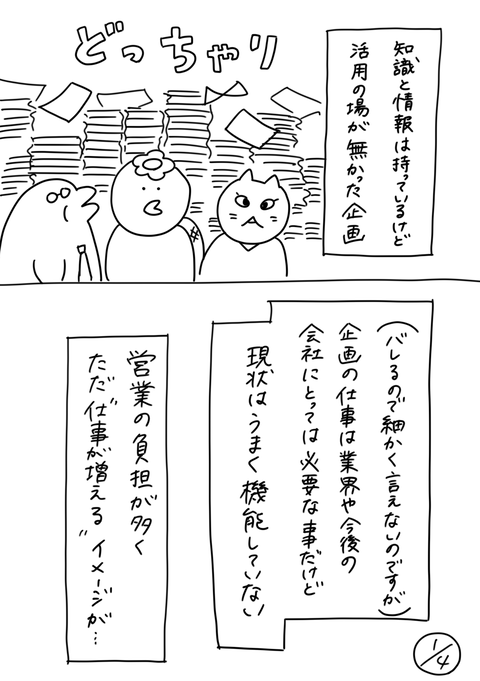 どっちゃり
知識と情報は持っているけど
活用の場が無かった企画
（バレるので細かく言えないのですが）
企画の仕事は業界や今後の
会社にとっては必要な事だけど
現状はうまく機能していない
営業の負担が多く
ただ“仕事が増える”イメージが…
1/4